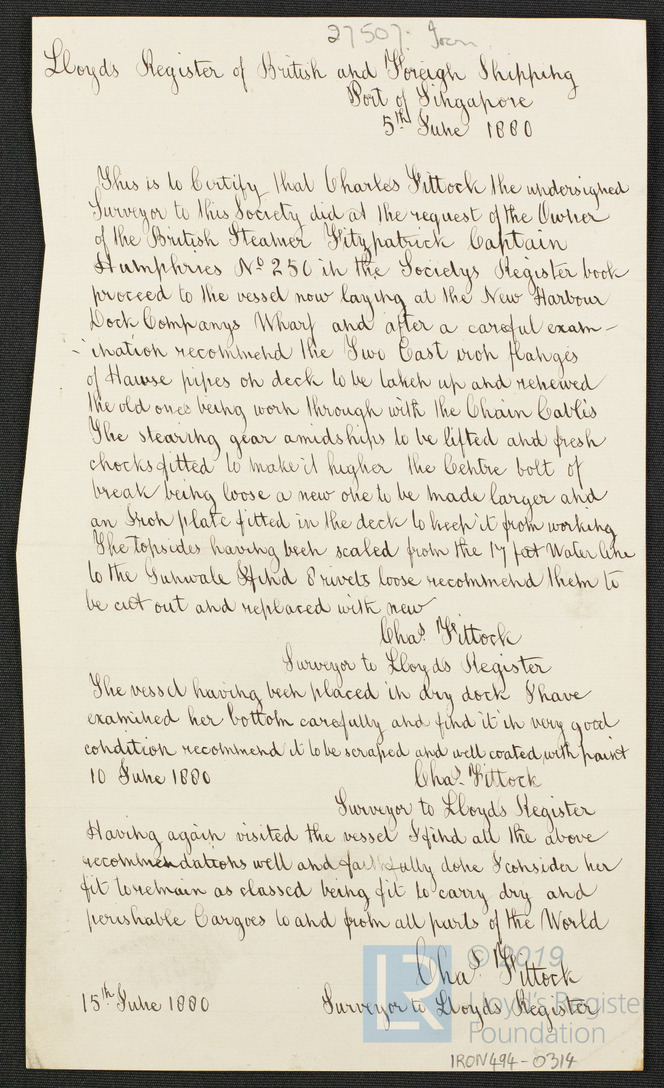 27507. Iron
Lloyds Register of British and Foreign Shipping
Port of Singapore
5th June 1880
This is to Certify that Charles Fittock the undersigned
Surveyor to this Society did at the request of the Owner
of the British Steamer Fitzpatrick Captain
Humphries No 250 in the Societys Register book
proceed to the vessel now laying at the New Harbour
Dock Companys Wharf and after a careful exam-
-ination recommend the Two Cast iron flanges
of Hawse pipes on deck to be taken up and renewed
the old ones being worn through with the Chain Cables
The stearing gear amidships to be lifted and fresh
chocks fitted to make it higher the Centre bolt of
break being loose a new one to be made larger and
an Iron plate fitted in the deck to keep it from working
The topsides having been scaled from the 17 feet Water line
to the Gunwale I find 8 rivets loose recommend them to
be cut out and replaced with new
Chas Fittock
Surveyor to Lloyds Register
The vessel having been placed in dry dock I have
examined her bottom carefully and find it in very good
condition recommend it to be scraped and well coated with paint
10 June 1880 Chas Fittock
Surveyor to Lloyds Register
Having again visited the vessel I find all the above
recommendations well and faithfully done I consider her
fit to remain as classed being fit to carry dry and
perishable Cargoes to and from all parts of the World
Chas Fittock
15th June 1880 Surveyor to Lloyds Register
LR © 2019
Lloyd's Register
Foundation
IRON494-0314